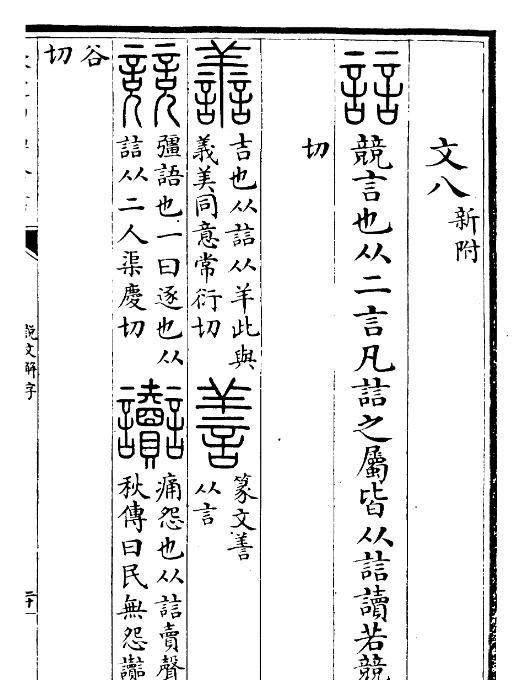 文八 新附
誩 競言也从二言凡誩之屬皆从誩讀若競
切
譱 吉也从誩从羊此與
義美同意常衍切
善 篆文善
从言
競 彊語也一曰逐也从
誩从二人渠慶切
讟 痛怨也从誩賣聲
秋傳曰民無怨讟
谷
切
說文解字